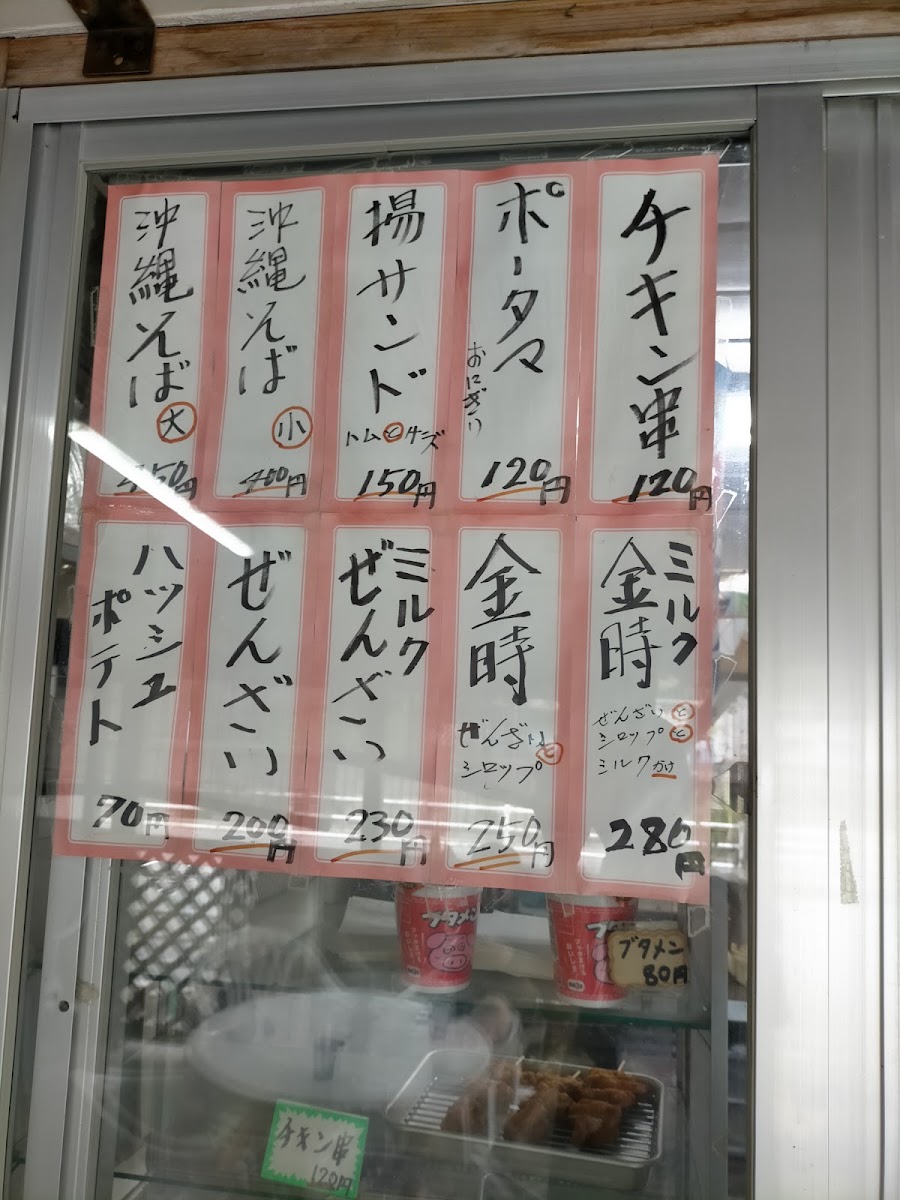 チキン串
120円
ポーク玉
おにぎり
120円
揚サンド
ハムとチーズ
150円
沖縄そば
小
400円
沖縄そば
大
450円
ミルク
金時
ぜんざいと
シロップと
ミルクかけ
280円
金時
ぜんざいと
シロップ
250円
ミルク
ぜんざい
230円
ぜんざい
200円
ハッシュ
ポテト
70円
ブタメン
ブタメン
80円
チキン串
120円